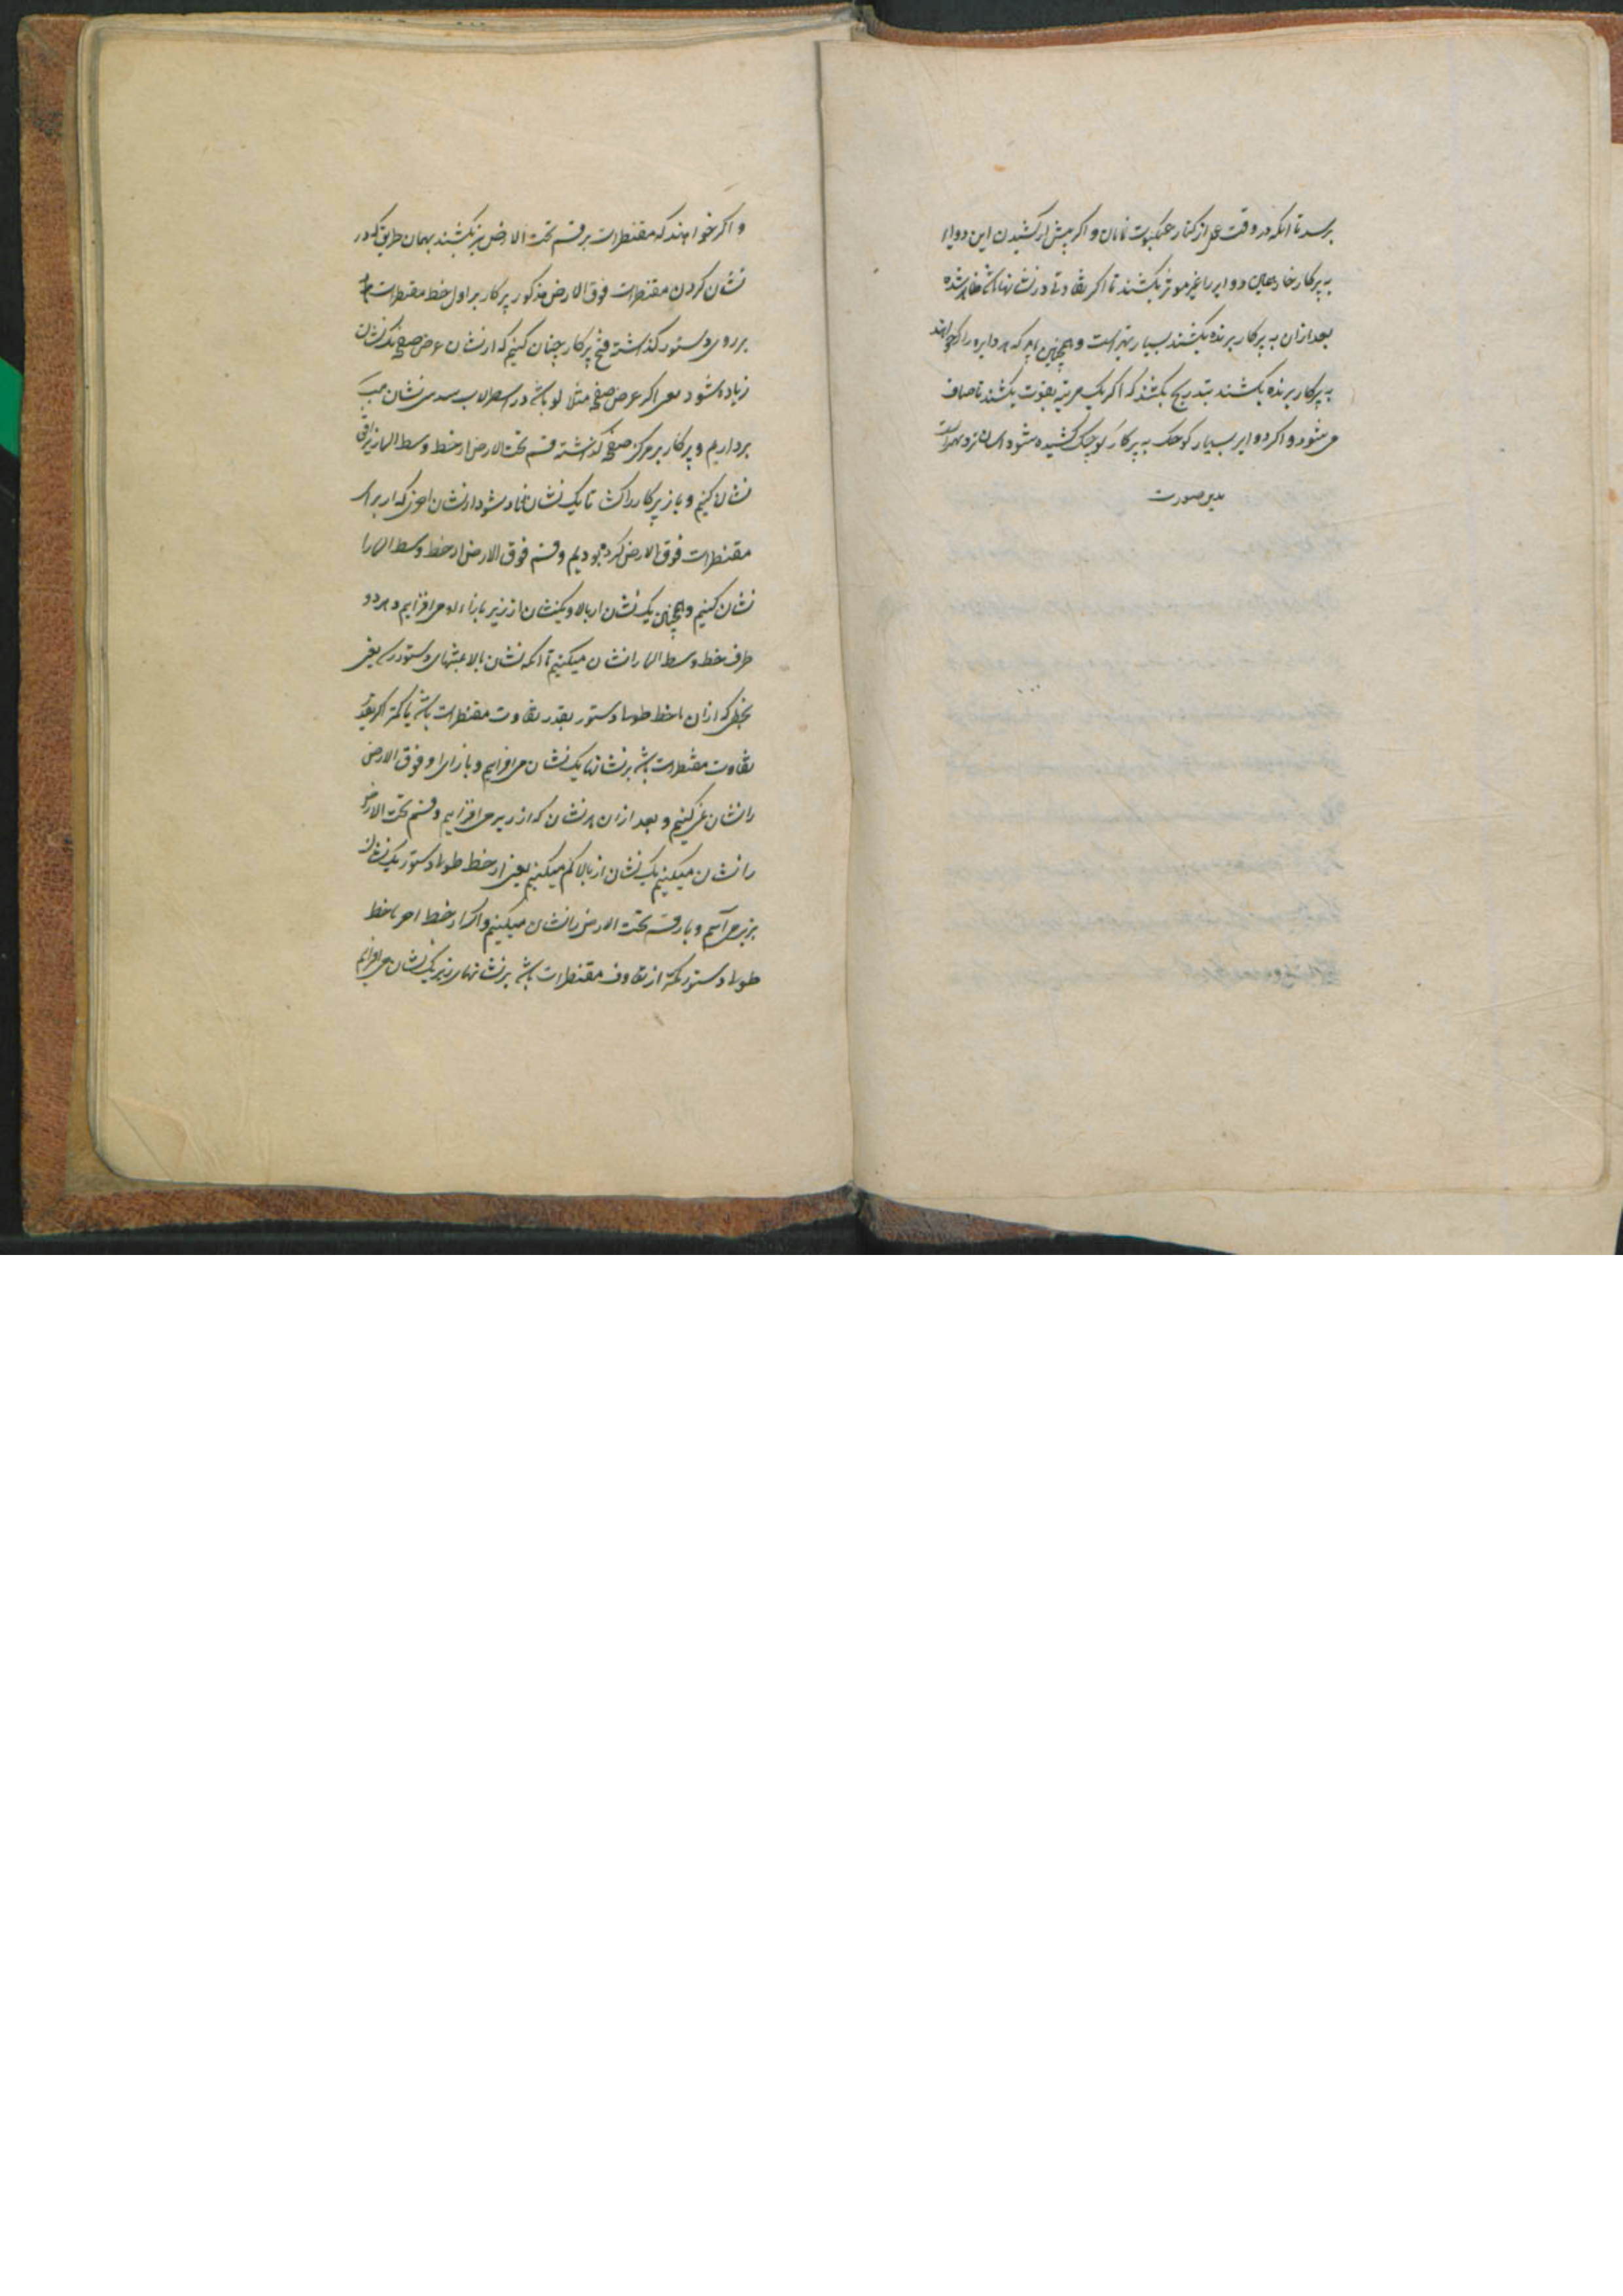 برسد تا انکه در وقت عمل از کنار عنکبوت نمایان و اکر پیش از کشیدن این دوایر
به پرکار خار دوایر را غیر موثر بکشند تا اکر تفاوتی در نشانها باشد ظاهر شده
بعد ازان به پرکار برنده بکشند بسیار بهتر است و همچنین باید که هر دایره را که خواهند
به پرکار برنده بکشند بتدریج بکشند که اکر یک مرتبه بقوت بکشند ناصاف
می شود و اکر دوایر بسیار کوچک به پرکار کوچک کشیده شود
بدین صورت
و اکر خواهند که مقنطرات بر قسم تحت الارض نیز بکشند بهمان طریق که در
نشان کردن مقنطرات فوق الارض مذکور پرکار بر اول خط مقنطرات
بر روی دستور کذاشته فتح پرکار چنان کنیم که از نشان عرض صفحه یک نشان
زیاده شود یعنی اکر عرض صفحه مثلا لو باشد در اسطرلاب سدسی نشان
برداریم و پرکار بر مرکز صفحه کذاشته قسم تحت الارض از خط وسط السما
نشان کنیم و باز پرکار را تا یک نشان زیاد شود از نشان که از برای
مقنطرات فوق الارض کرده بودیم و قسم فوق الارض از خط وسط السما را
نشان کنیم و همچنان یک نشان از بالا و یکنشان از زیر می افزایم و هر دو
طرف خط وسط السما را نشان میکنیم تا انکه نشان بالا بمنتهای دستور رسد یعنی
بخطی که ازان تا خط طولا دستور بقدر تفاوت مقنطرات باشد یا کمتر اکر بقدر
تفاوت مقنطرات باشد بر نشانها یک نشان می افزایم و بازای او فوق الارض
را نشان می کنیم و بعد ازان هر نشان که از زیر می افزایم و قسم تحت الارض
را نشان میکنیم یک نشان از بالا کم میکنیم یعنی از خط طولا دستور یک نشان
بزیر می آییم و باز قسم تحت الارض را نشان میکنیم و اکر از خط اخر تا خط
طولا دستور کمتر از تفاوت مقنطرات باشد بر نشانهای زیر یک نشان می افزایم